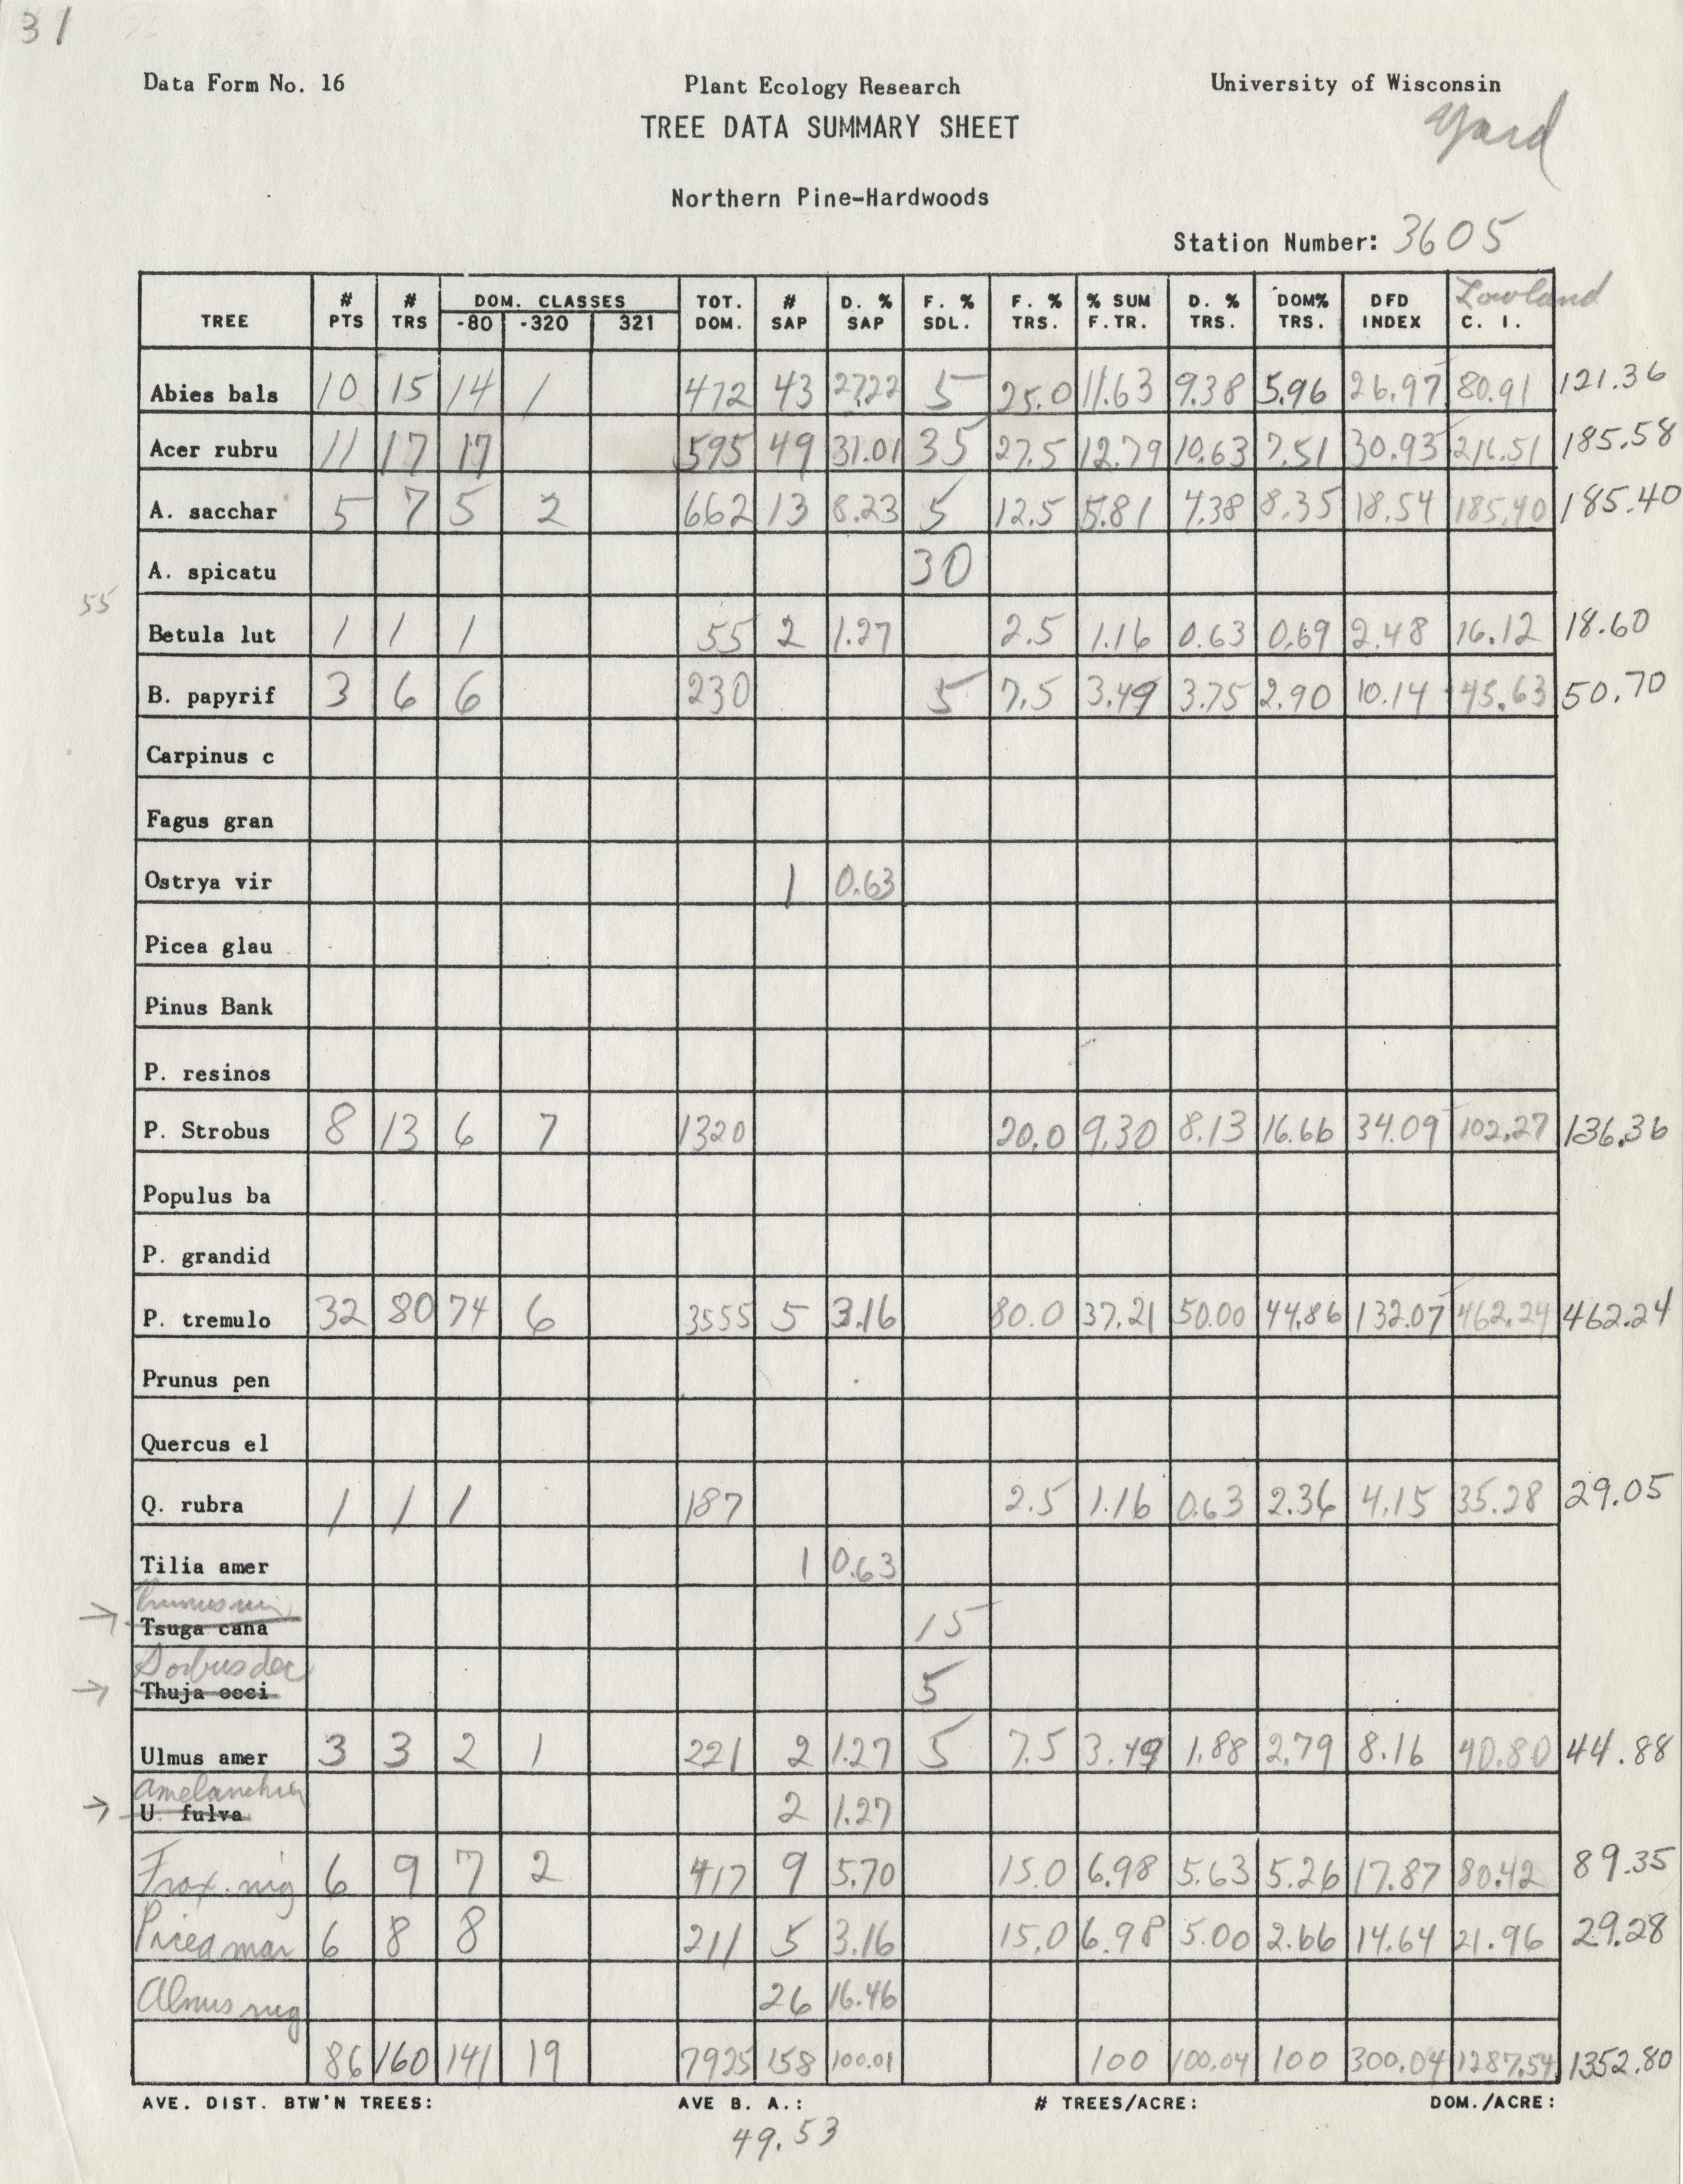 31
Data Form No. 16 Plant Ecology Research University of Wisconsin
TREE DATA SUMMARY SHEET
Yard
Northern Pine-Hardwoods
Station Number: 3605
TREE # PTS # TRS DOM. CLASSES -80 -320 321 TOT. DOM. # SAP D. % SAP F. % SDL. F. % TRS. % SUM F. TR. D. % TRS. DOM% TRS. DFD INDEX Lowland C. I.
Abies bals 10 15 14 1 472 43 27.22 5 25.0 11.63 9.38 5.96 26.97 80.91 121.36
Acer rubru 11 17 17 595 49 31.01 35 27.5 12.79 10.63 7.51 30.93 216.51 185.58
A. sacchar 5 7 5 2 662 13 8.23 5 12.5 5.81 4.38 8.35 18.54 185.40 185.40
A. spicatu 30
55
Betula lut 1 1 1 55 2 1.27 2.5 1.16 0.63 0.69 2.48 16.12 18.60
B. papyrif 3 6 6 230 5 7.5 3.49 3.75 2.90 10.14 45.63 50.70
Carpinus c
Fagus gran
Ostrya vir 1 0.63
Picea glau
Pinus Bank
P. resinos
P. Strobus 8 13 6 7 1320 20.0 9.30 8.13 16.66 34.09 102.27 136.36
Populus ba
P. grandid
P. tremulo 32 80 74 6 3555 5 3.16 80.0 37.21 50.00 44.86 132.07 462.24 462.24
Prunus pen
Quercus el
Q. rubra 1 1 1 187 2.5 1.16 0.63 2.36 4.15 35.28 29.05
Tilia amer 1 0.63
→ Tsuga cana 15
Sorbus dec
→ Thuja occi 5
Ulmus amer 3 3 2 1 221 2 1.27 5 7.5 3.49 1.88 2.79 8.16 40.80 44.88
Amelanchier
→ U. fulva 2 1.27
Frax. nig 6 9 7 2 417 9 5.70 15.0 6.98 5.63 5.26 17.87 80.42 89.35
Picea mar 6 8 8 211 5 3.16 15.0 6.98 5.00 2.66 14.64 21.96 29.28
Alnus rug 26 16.46
86 160 141 19 7925 158 100.01 100 100.04 100 300.04 1287.54 1352.80
AVE. DIST. BTW'N TREES: AVE B. A.: # TREES/ACRE: DOM./ACRE:
49.53